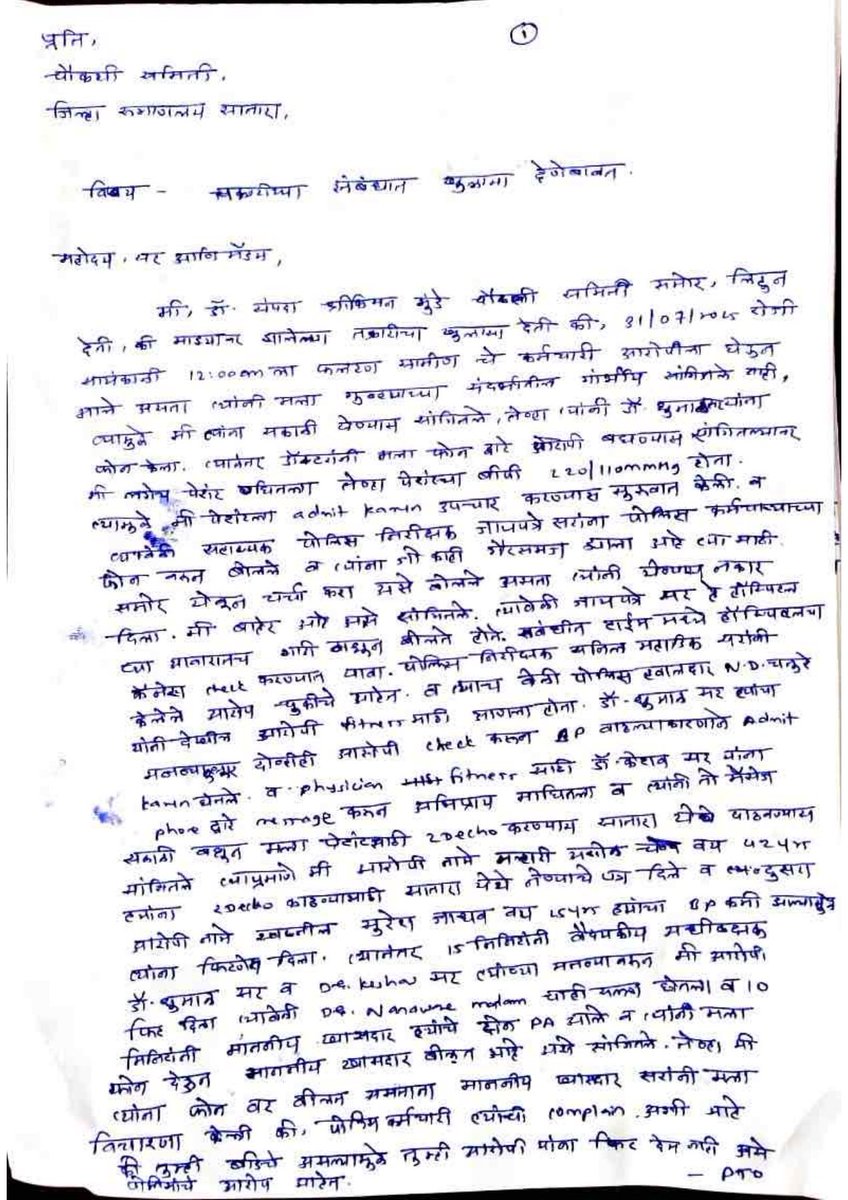 ①
प्रति,
चौकशी समिती,
जिल्हा रुग्णालय सातारा,
विषय - चौकशीच्या संबंधात खुलासा देणेबाबत.
महोदय, सर आणि मॅडम,
मी, डॉ. संपदा मुंडे चौकशी समिती समोर, लिहून
देती, की माझ्यावर झालेल्या तक्रारीचा खुलासा देती की, 31/07/2025 रोजी
12:00am ला फलटण ग्रामीण चे कर्मचारी आरोपीला घेऊन
आले असता त्यांनी मला गुन्ह्याच्या संदर्भातील गांभीर्य सांगितले नाही,
त्यामुळे मी त्यांना सकाळी येण्यास सांगितले, तेव्हा त्यांनी डॉ. धुमाळ त्यांना
फोन केला. त्यानंतर डॉक्टरांनी मला फोन द्वारे आरोपी बघण्यास सांगितल्यानंतर
मी लगेच पेशंट बघितला तेव्हा पेशंटचा बीपी 220/110mmHg होता.
त्यामुळे मी पेशंटला admit करून उपचार करण्यास सुरुवात केली. व
त्यावेळी सहाय्यक पोलिस निरीक्षक जायपत्रे सरांना पोलिस कर्मचाऱ्याच्या
फोन वरून बोलले व त्यांना जो काही गैरसमज झाला आहे त्या साठी
समोर येऊन चर्चा करा असे बोलले असता त्यांनी येण्यास नकार
दिला. मी बाहेर आहे असे सांगितले. त्यावेळी जायपत्रे सर हे हॉस्पिटल
च्या आवारातच गाडी काढून बोलत होते. संबंधीत टाईम मध्ये हॉस्पिटलचा
कॅमेरा check करण्यात यावा. पोलिस निरीक्षक अनिल महाडिक सरांनी
केलेले आरोप चुकीचे आहेत. व त्याच वेळी पोलिस हवालदार N.D. चतुरे
यांनी देखील आरोपी fitness साठी आणला होता. डॉ. धुमाळ सर ह्यांच्या
दोन्हीही आरोपी check करून BP वाढल्याकारणाने Admit
करून घेतले. व physician fitness साठी डॉ. केशव सर यांना
phone द्वारे message करून अभिप्राय मागितला व त्यांनी तो मॅसेज
सकाळी बघून मला पेशंटसाठी 2Decho करण्यास सातारा येथे पाठवण्यास
सांगितले त्याप्रमाणे मी आरोपी नामे मल्हारी अशोक वय 42yr
ह्यांना 2Decho काढण्यासाठी सातारा येथे नेण्याचे पत्र दिले व दुसरा
आरोपी नामे स्वप्नील सुरेश जाधव वय ह्यांचा BP कमी
त्यांना फिटनेस दिला. त्यानंतर 15 मिनिटांनी वैद्यकीय अधीक्षक
डॉ. धुमाळ सर व Dr. Keshav सर त्यांच्या मी आरोपी
फिट दिला त्यावेळी Dr. Nanaware madam चाही सल्ला घेतला व 10
मिनिटांनी माननीय खासदार ह्यांचे दोन PA आले व त्यांनी मला
फोन देऊन माननीय खासदार बोलत आहे असे सांगितले. तेव्हा मी
त्यांना फोन वर बोलत असताना माननीय खासदार सरांनी मला
विचारणा केली की, पोलिस कर्मचारी त्यांची complain अशी आहे
की तुम्ही बीडचे असल्यामुळे तुम्ही आरोपी यांना फिट देत नाही असे
पोलिसांचे आरोप आहेत. - PTO